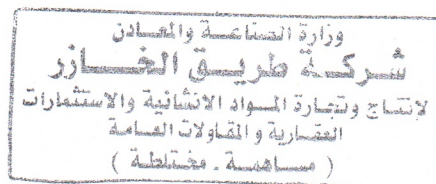 وزارة الصناعة والمعادن
شركة طريق الخازر
لإنتاج وتجارة المواد الانشائية والاستثمارات
العقارية والمقاولات العامة
( مساهمة - مختلطة )